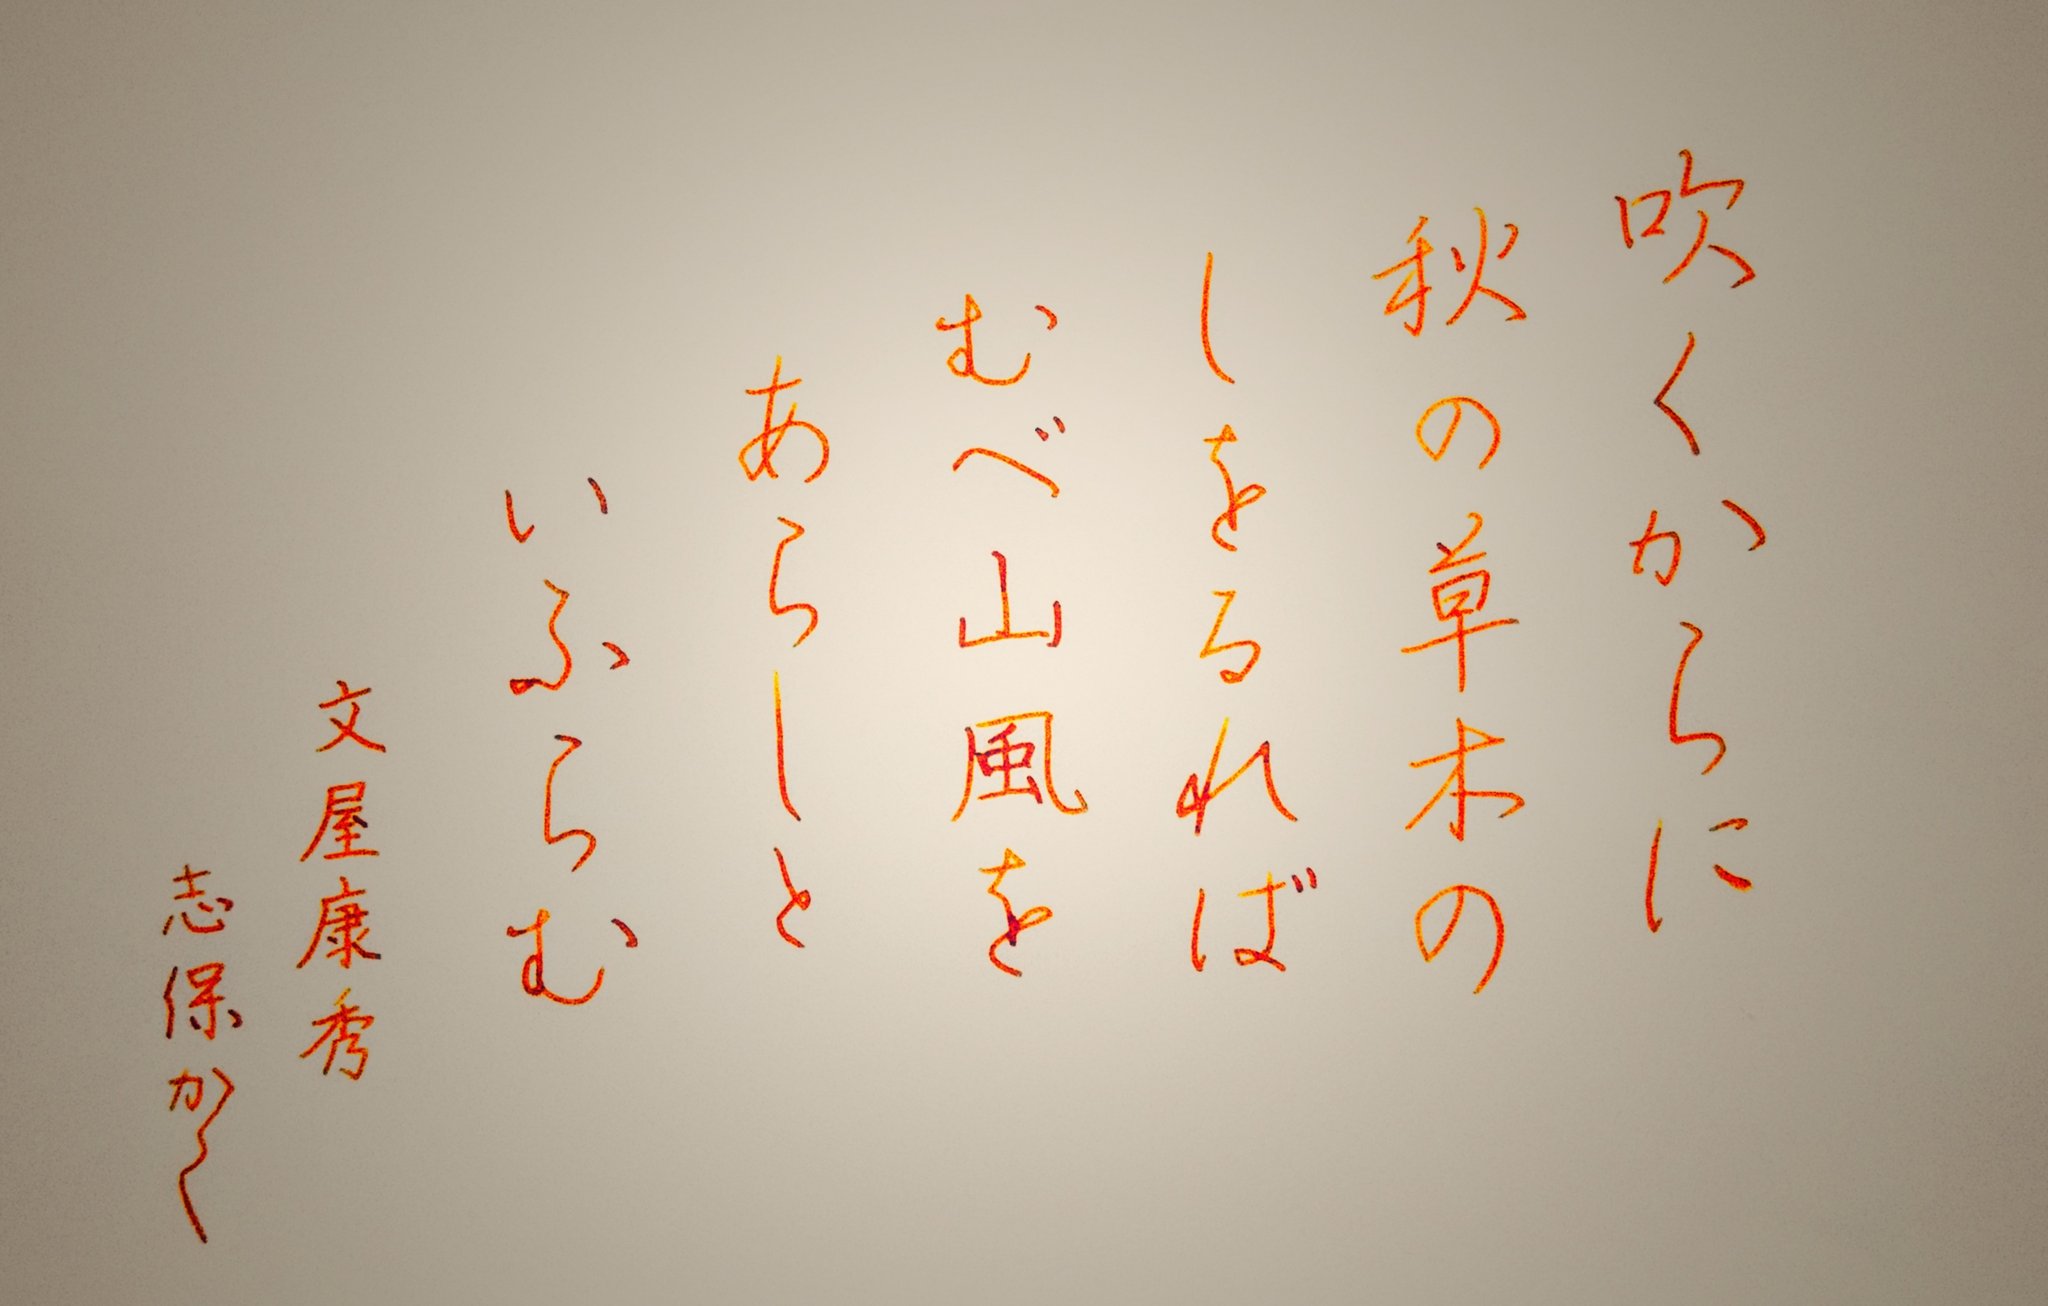 吹くからに
秋の草木の
しをるれば
むべ山風を
あらしと
いふらむ
文屋康秀
志保かく